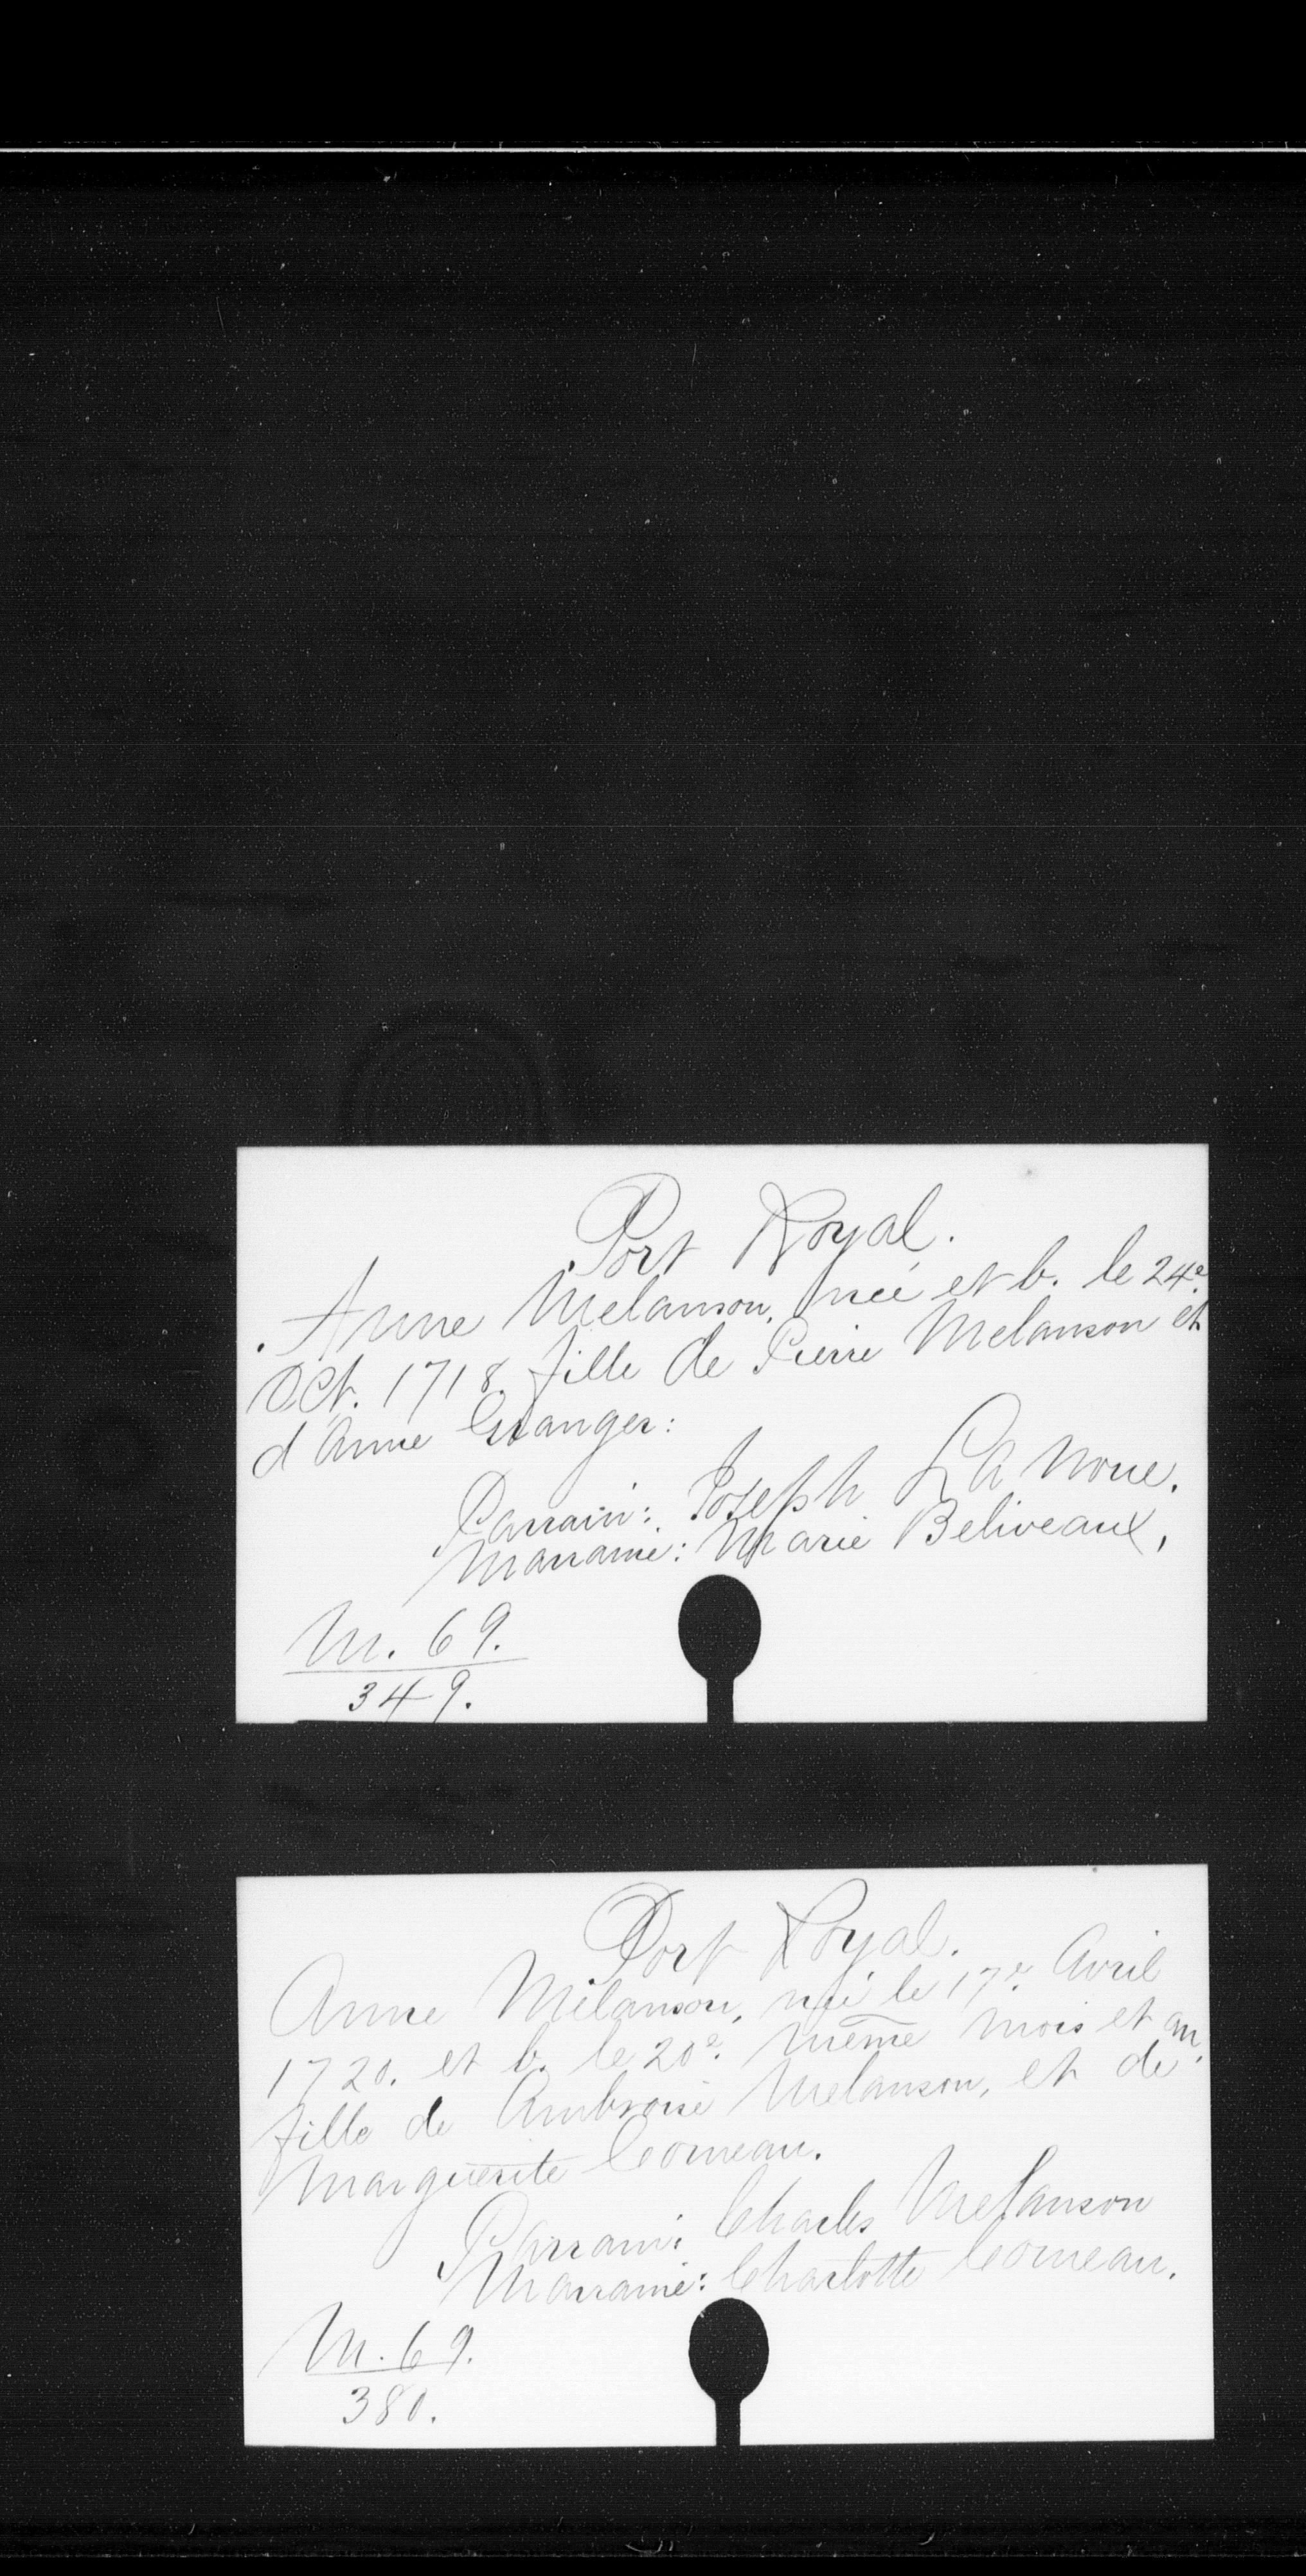 Port Royal.
Anne Melanson, née et b. le 24e
Oct. 1718, fille de Pierre Melanson et
d'Anne Granger:
Parrain: Joseph La Noue.
Marraine: Marie Beliveaux,
M. 69.
349.
Port Royal.
Anne Melanson, née le 17e Avril
1720. et b. le 20e même mois et an.
fille de Ambroise Melanson, et de
Marguerite Comeau.
Parrain: Charles Melanson
Marraine: Charlotte Comeau.
M. 69.
380.